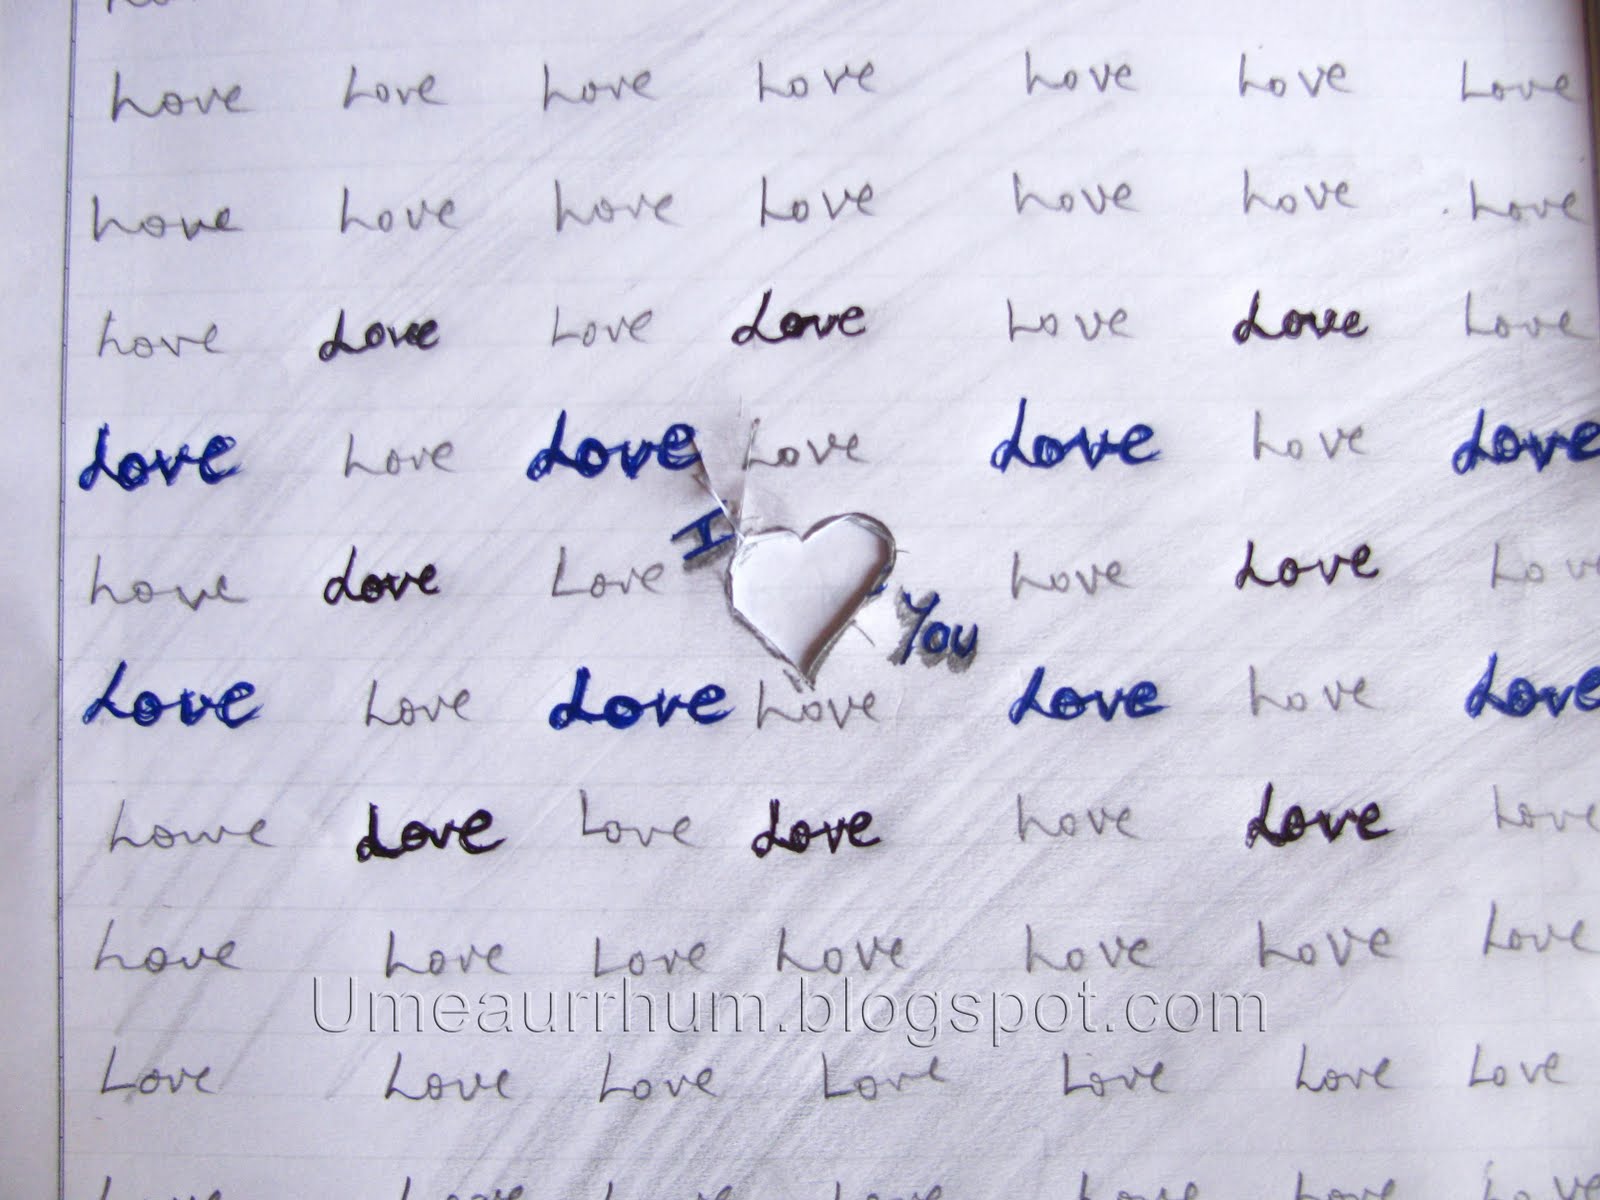 Love Love Love Love Love Love Love
Love Love Love Love Love Love Love
Love Love Love Love Love Love Love
Love Love Love Love Love Love Love
I
Love Love Love Love Love Love
You
Love Love Love Love Love Love Love
Love Love Love Love Love Love Love
Love Love Love Love Love Love Love
Umeaurrhum.blogspot.com
Love Love Love Love Love Love Love